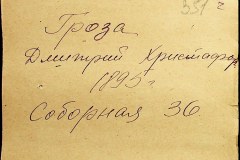 351
Гроза
Дмитрий Христофор
1895 г
Соборная 36